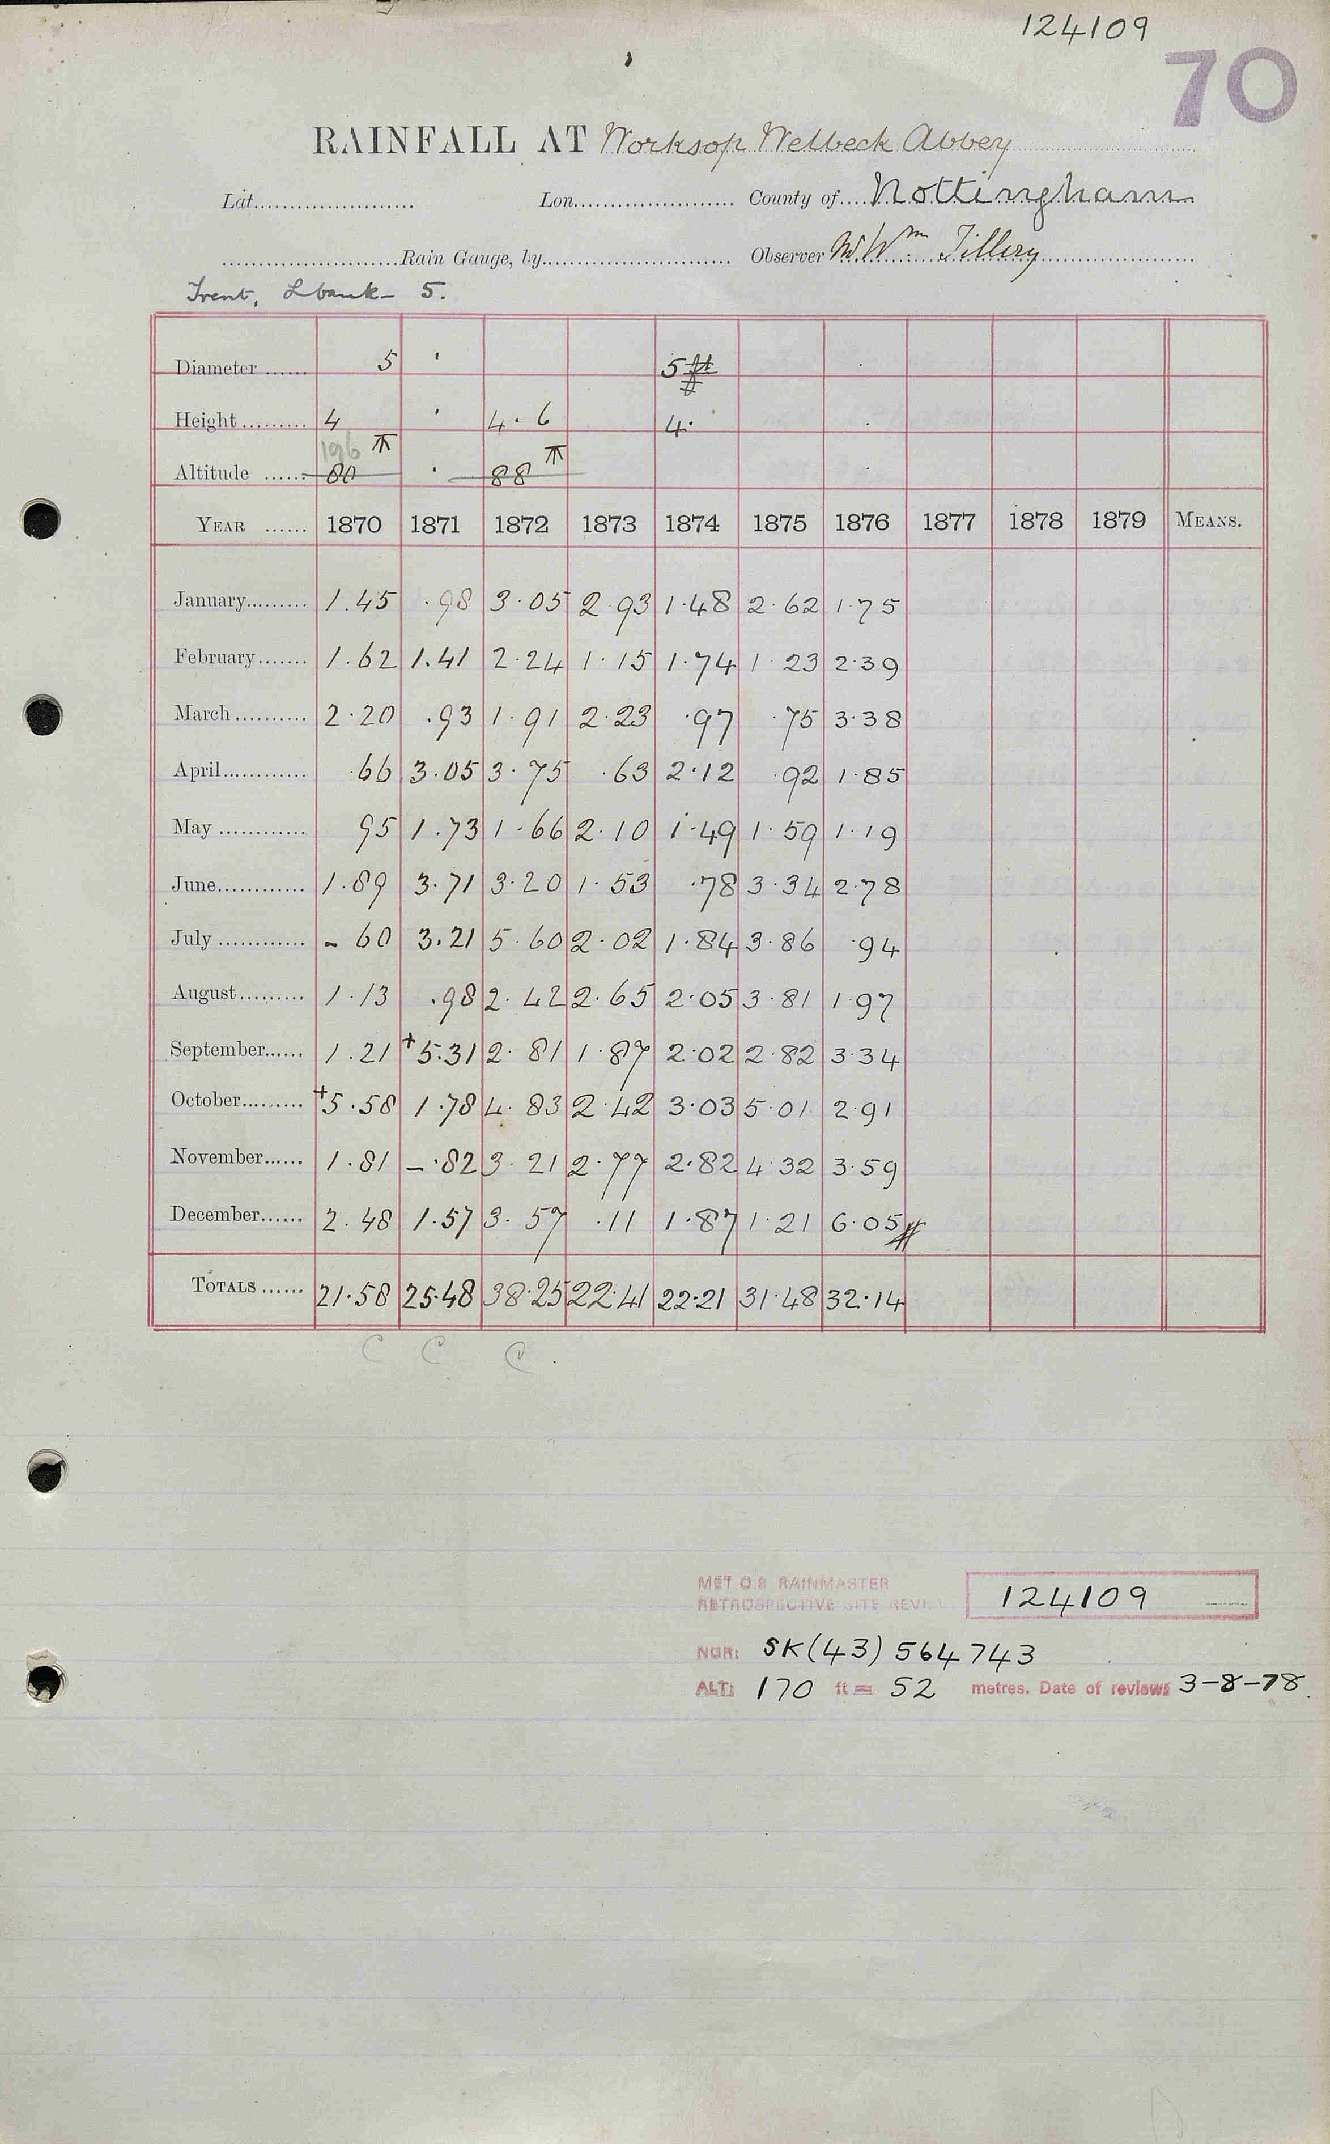 124109
70
RAINFALL AT Worksop Welbeck Abbey
Lat. Lon. County of Nottingham
Rain Gauge, by Observer Mr Wm Tillery
Trent, L bank - 5.
Diameter 5 5
Height 4 4.6 4.
196
Altitude 80 88
YEAR 1870 1871 1872 1873 1874 1875 1876 1877 1878 1879 MEANS.
January 1.45 .98 3.05 2.93 1.48 2.62 1.75
February 1.62 1.41 2.24 1.15 1.74 1.23 2.39
March 2.20 .93 1.91 2.23 .97 .75 3.38
April .66 3.05 3.75 .63 2.12 .92 1.85
May 95 1.73 1.66 2.10 1.49 1.59 1.19
June 1.89 3.71 3.20 1.53 .78 3.34 2.78
July - 60 3.21 5.60 2.02 1.84 3.86 .94
August 1.13 .98 2.42 2.65 2.05 3.81 1.97
September 1.21 +5.31 2.81 1.87 2.02 2.82 3.34
October +5.58 1.78 4.83 2.42 3.03 5.01 2.91
November 1.81 -.82 3.21 2.77 2.82 4.32 3.59
December 2.48 1.57 3.57 .11 1.87 1.21 6.05
TOTALS 21.58 25.48 38.25 22.41 22.21 31.48 32.14
C C C
MET O.8 RAINMASTER
RETROSPECTIVE SITE REVIEW 124109
NGR: SK(43) 564743
ALT: 170 ft = 52 metres. Date of review: 3-8-78.